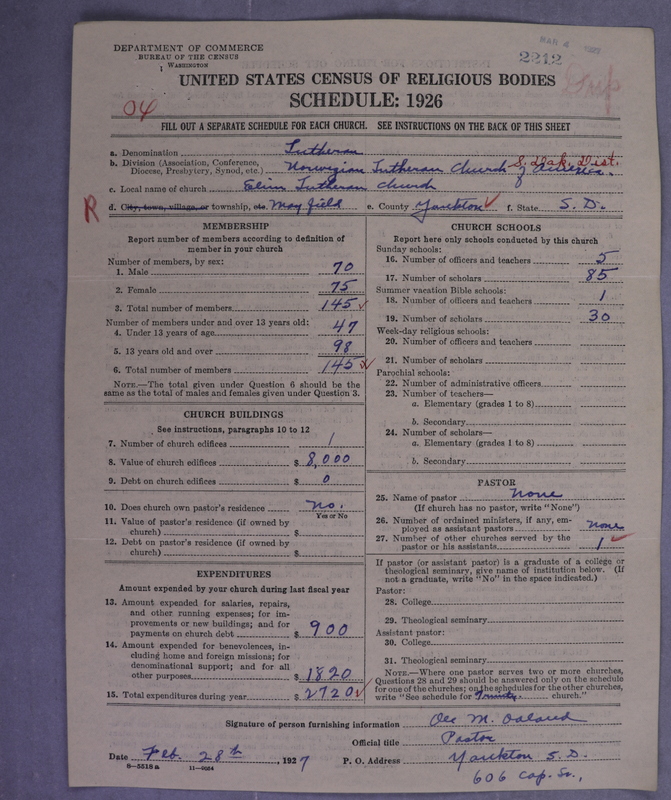 DEPARTMENT OF COMMERCE
BUREAU OF THE CENSUS
WASHINGTON
MAR 4 1927
2212
UNITED STATES CENSUS OF RELIGIOUS BODIES
SCHEDULE: 1926
04
FILL OUT A SEPARATE SCHEDULE FOR EACH CHURCH. SEE INSTRUCTIONS ON THE BACK OF THIS SHEET
a. Denomination Lutheran
b. Division (Association, Conference, Diocese, Presbytery, Synod, etc.) Norwegian Lutheran Church of America. S. Dak. Dist.
c. Local name of church Elim Lutheran Church
R
d. City, town, village, or township, etc. Mayfield e. County Yankton f. State S. D.
MEMBERSHIP
Report number of members according to definition of
member in your church
Number of members, by sex:
1. Male 70
2. Female 75
3. Total number of members 145
Number of members under and over 13 years old:
4. Under 13 years of age 47
5. 13 years old and over 98
6. Total number of members 145
NOTE.—The total given under Question 6 should be
same as the total of males and females given under Question 3.
CHURCH BUILDINGS
See instructions, paragraphs 10 to 12
7. Number of church edifices 1
8. Value of church edifices $ 8,000
9. Debt on church edifices $ 0
10. Does church own pastor's residence no.
Yes or No
11. Value of pastor's residence (if owned by
church) $
12. Debt on pastor's residence (if owned by
church) $
EXPENDITURES
Amount expended by your church during last fiscal year
13. Amount expended for salaries, repairs,
and other running expenses; for im-
provements or new buildings; and for
payments on church debt $ 900
14. Amount expended for benevolences, in-
cluding home and foreign missions; for
denominational support; and for all
other purposes $ 1820
15. Total expenditures during year $ 2720
CHURCH SCHOOLS
Report here only schools conducted by this church
Sunday schools:
16. Number of officers and teachers 5
17. Number of scholars 85
Summer vacation Bible schools:
18. Number of officers and teachers 1
19. Number of scholars 30
Week-day religious schools:
20. Number of officers and teachers
21. Number of scholars
Parochial schools:
22. Number of administrative officers
23. Number of teachers—
a. Elementary (grades 1 to 8)
b. Secondary
24. Number of scholars—
a. Elementary (grades 1 to 8)
b. Secondary
PASTOR
25. Name of pastor none
(If church has no pastor, write "None")
26. Number of ordained ministers, if any, em-
ployed as assistant pastors none
27. Number of other churches served by the
pastor or his assistants 1
If pastor (or assistant pastor) is a graduate of a college or
theological seminary, give name of institution below. (If
not a graduate, write "No" in the space indicated.)
Pastor:
28. College
29. Theological seminary
Assistant pastor:
30. College
31. Theological seminary
NOTE.—Where one pastor serves two or more churches,
Questions 28 and 29 should be answered only on the schedule
for one of the churches; on the schedules for the other churches,
write "See schedule for Trinity church."
Signature of person furnishing information Ole M.
Official title Pastor
Date Feb. 28th, 1927 P. O. Address Yankton S. D.
8-5518a 11-9654
606 Cap. St.,